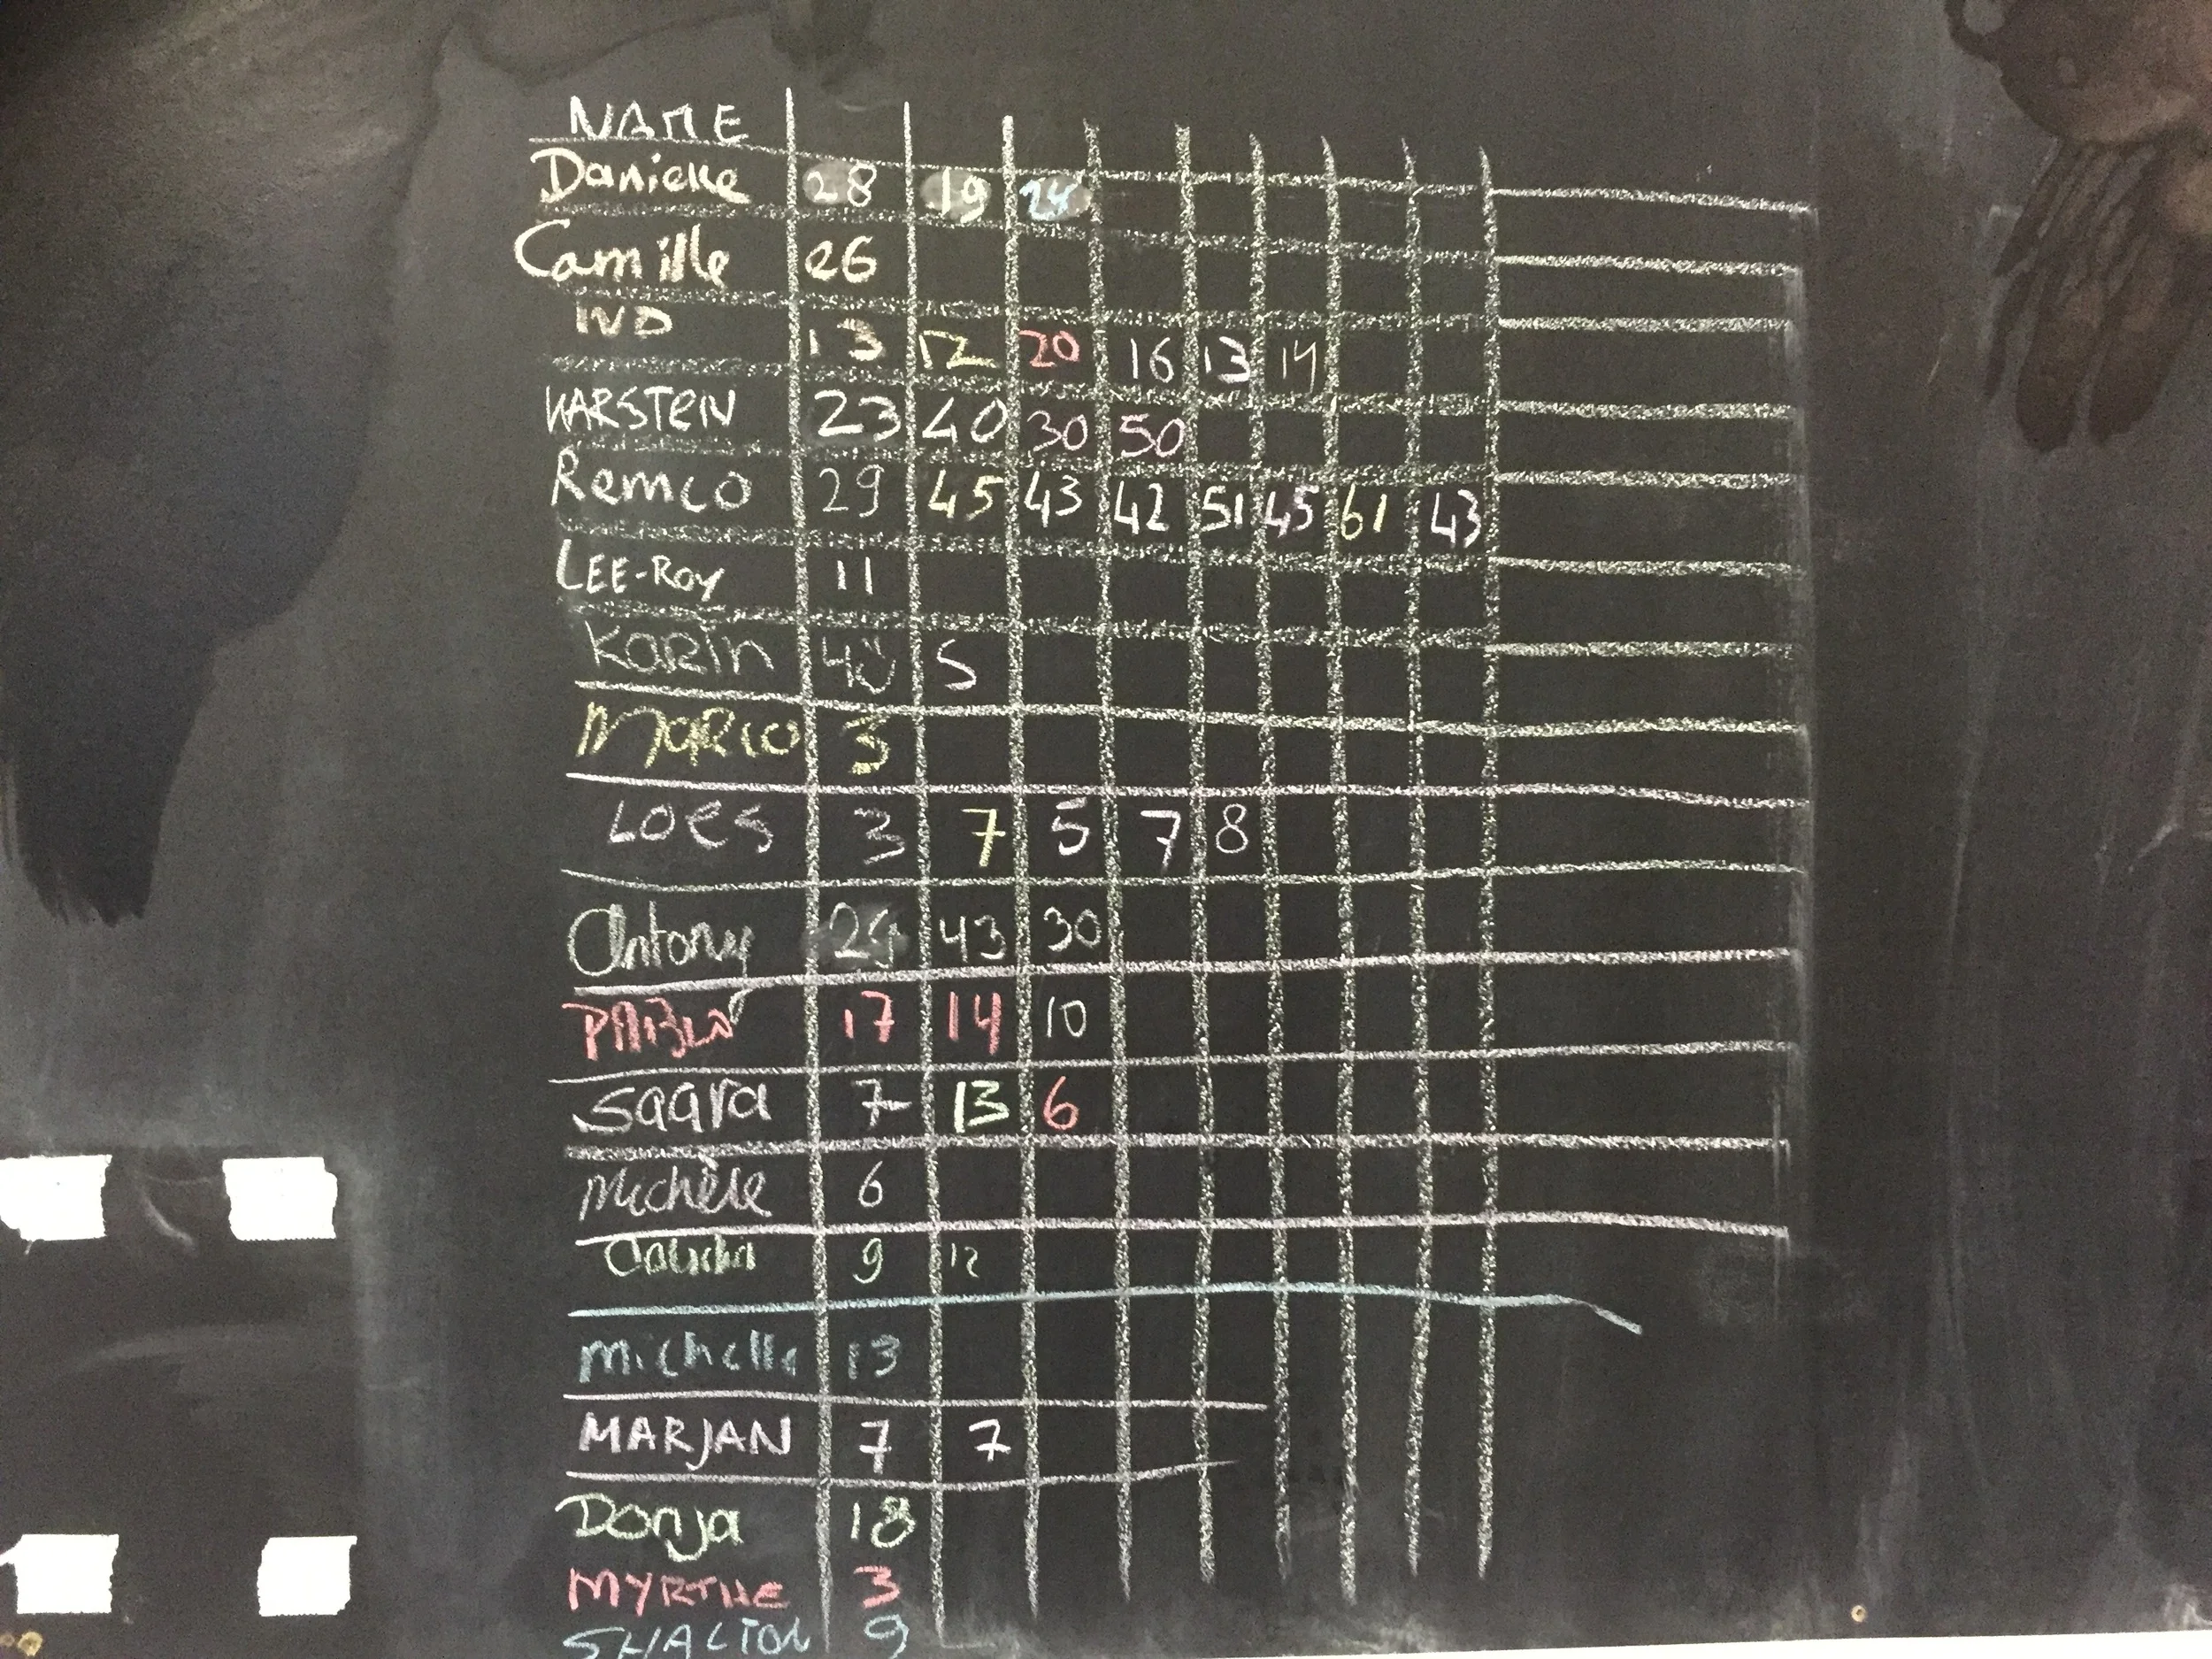 NAME
Danielle 28 19 24
Camille 26
13 12 20 16 13 14
KARSTEN 23 40 30 50
Remco 29 45 43 42 51 45 61 43
LEE-ROY 11
Karin 5
Marco 3
LOES 3 7 5 7 8
Antony 29 43 30
PABLO 17 14 10
Saara 7 13 6
Michèle 6
Claudia 9 12
Michelle 13
MARJAN 7 7
Donja 18
MYRTHE 3
9